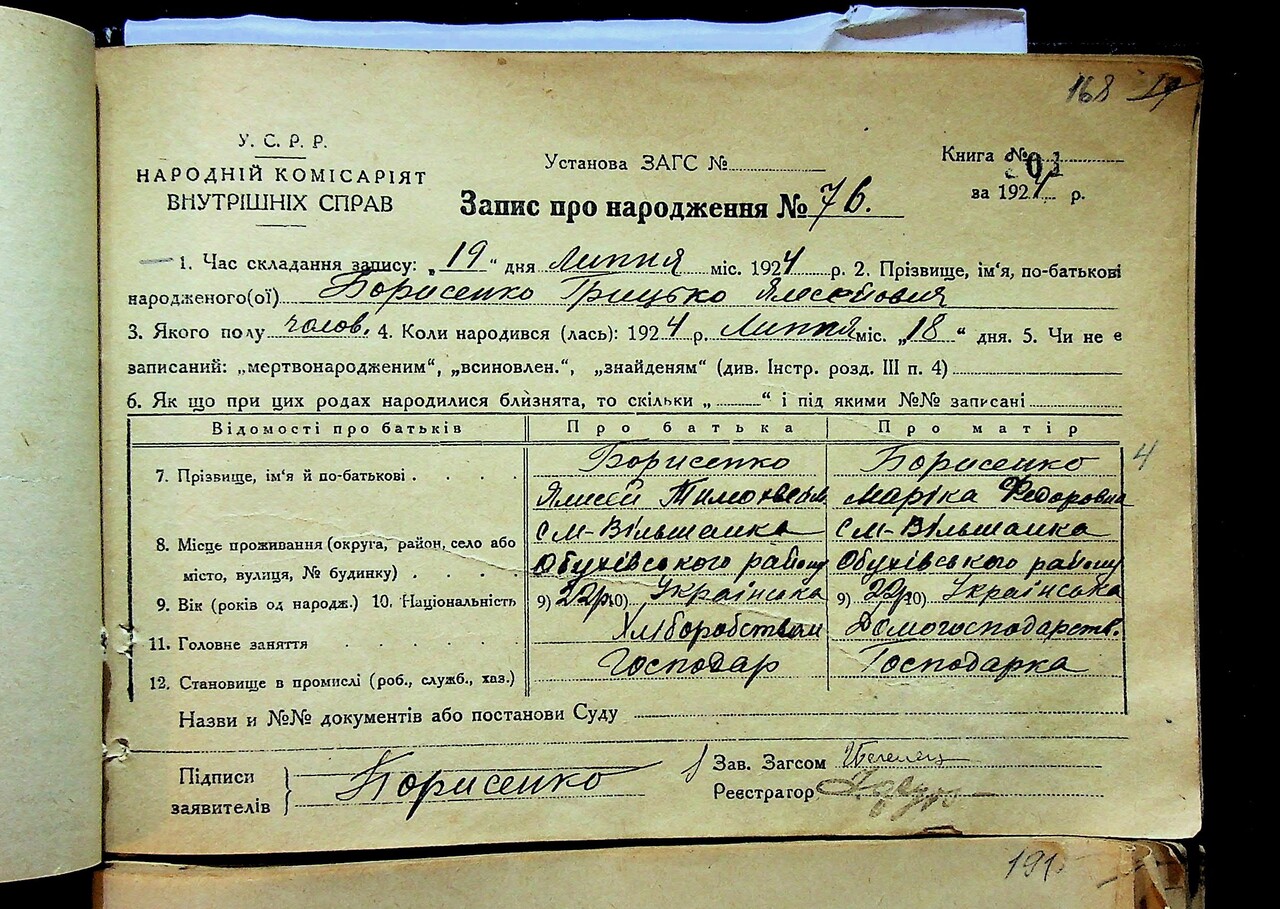 168
У. С. Р. Р.
НАРОДНІЙ КОМІСАРІЯТ
ВНУТРІШНІХ СПРАВ
Установа ЗАГС №
Книга №
за 1924 р.
Запис про народження № 76.
1. Час складання запису: „19“ дня Липня міс. 1924 р. 2. Прізвище, ім‘я, по-батькові
народженого(ої) Борисенко Грицько Ялисейович
3. Якого полу чолов. 4. Коли народився (лась): 1924 р. Липня міс. „18“ дня. 5. Чи не є
записаний: „мертвонародженим“, „всиновлен.“, „знайденям“ (див. Інстр. розд. III п. 4)
6. Як що при цих родах народилися близнята, то скільки „ “ і під якими №№ записані
Відомості про батьків Про батька Про матір
7. Прізвище, ім‘я й по-батькові Борисенко Борисенко 4
Ялисей Тимохвейов Маріка Федоровна
см-Вільшанка см-Вільшанка
8. Місце проживання (округа, район, село або
місто, вулиця, № будинку) Обухівського району Обухівського району
9. Вік (років од народж.) 10. Національність 9) 22р. 10) Українська 9) 22р. 10) Українська
11. Головне заняття Хліборобством Домогосподарств.
12. Становище в промислі (роб., служб., хаз.) Господар Господарка
Назви и №№ документів або постанови Суду
Підписи
заявителів } Борисенко
Зав. Загсом
Реєстратор
191